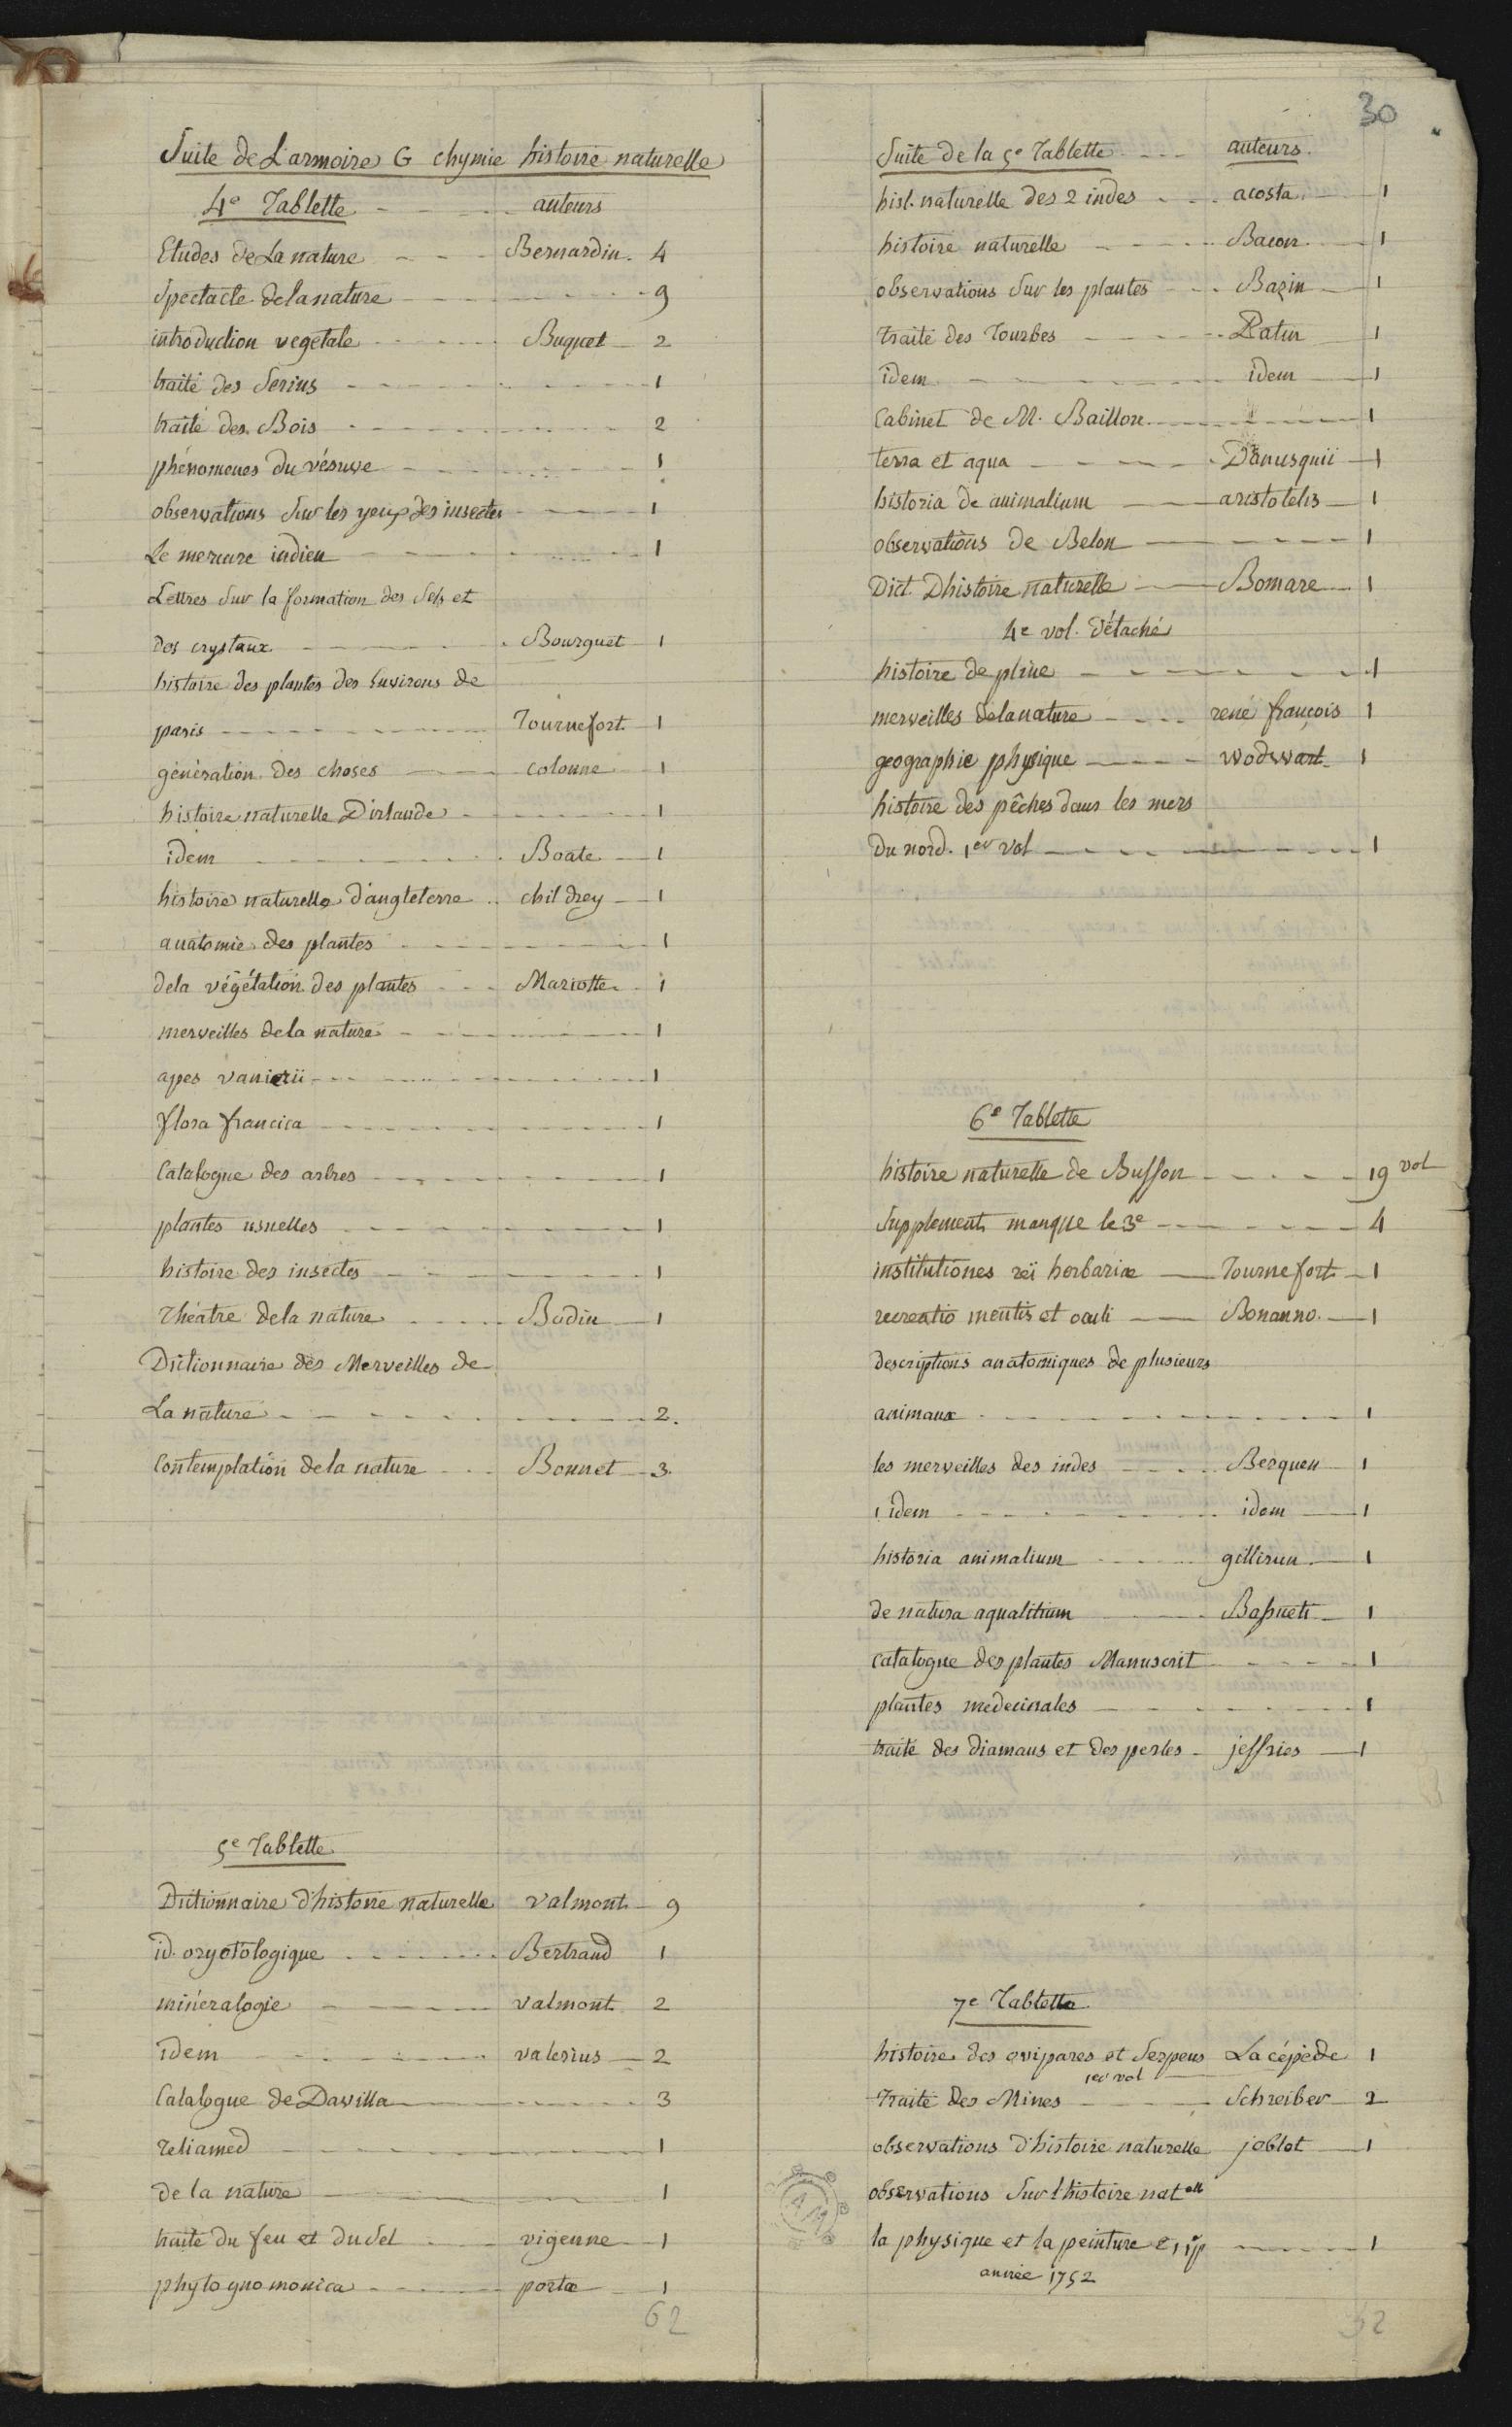 30
Suite de L'armoire G chymie histoire naturelle
4e Tablette auteurs
Etudes de La nature Bernardin. 4
Spectacle de la nature 9
introduction vegetale Buquet 2
traité des Serins 1
traité des Bois 2
phénomenes du vésuve 1
observations Sur les yeux des insectes 1
Le mercure indien 1
Lettres Sur la formation des Sels et
des crystaux Bourguet 1
histoire des plantes des Environs de
paris Tournefort 1
génération des choses colonne 1
histoire naturelle D'irlande 1
idem Boate 1
histoire naturelle d'angleterre childrey 1
anatomie des plantes 1
de la végétation des plantes Mariotte 1
merveilles de la nature 1
apes vanierii 1
flora francica 1
Catalogue des arbres 1
plantes usuelles 1
histoire des insectes 1
Théatre de la nature Bodin 1
Dictionnaire des Merveilles de
La nature 2.
Contemplation de la nature Bonnet 3.
5e Tablette
Dictionnaire d'histoire naturelle valmont 9
id. oryctologique Bertrand 1
minéralogie valmont 2
idem valerius 2
Catalogue de Davilla 3
Teliamed 1
de la nature 1
traité du feu et du Sel vigenne 1
phytognomonica portæ 1
62
Suite de la 5e Tablette auteurs.
hist. naturelle des 2 indes acosta 1
histoire naturelle Bacon 1
observations Sur les plantes Bazin 1
Traité des Tourbes Patin 1
idem idem 1
Cabinet de M. Baillon 1
terra et aqua Danusquii 1
historia de animalium aristotelis 1
observations de Belon 1
Dict. D'histoire naturelle Bomare 1
4e vol. détaché
histoire de pline 1
merveilles de la nature rené françois 1
geographie physique wodwart 1
histoire des pêches dans les mers
Du nord. 1er vol 1
6e Tablette
histoire naturelle de Buffon 19 vol
Supplement manque le 3e 4
institutiones reï herbariæ Tournefort 1
recreatio mentis et oculi Bonanno. 1
descriptions anatomiques de plusieurs
animaux 1
les merveilles des indes Berquen 1
idem idem 1
historia animalium 1
de natura aquatilium 1
catalogue des plantes Manuscrit 1
plantes médecinales 1
traité des diamans et des perles jeffries 1
7e Tablette
histoire des ovipares et Serpens La cépède 1
1er vol
Traité des Mines Schreiber 2
observations d'histoire naturelle joblot 1
observations Sur l'histoire natelle
la physique et la peinture 1
année 1752
52